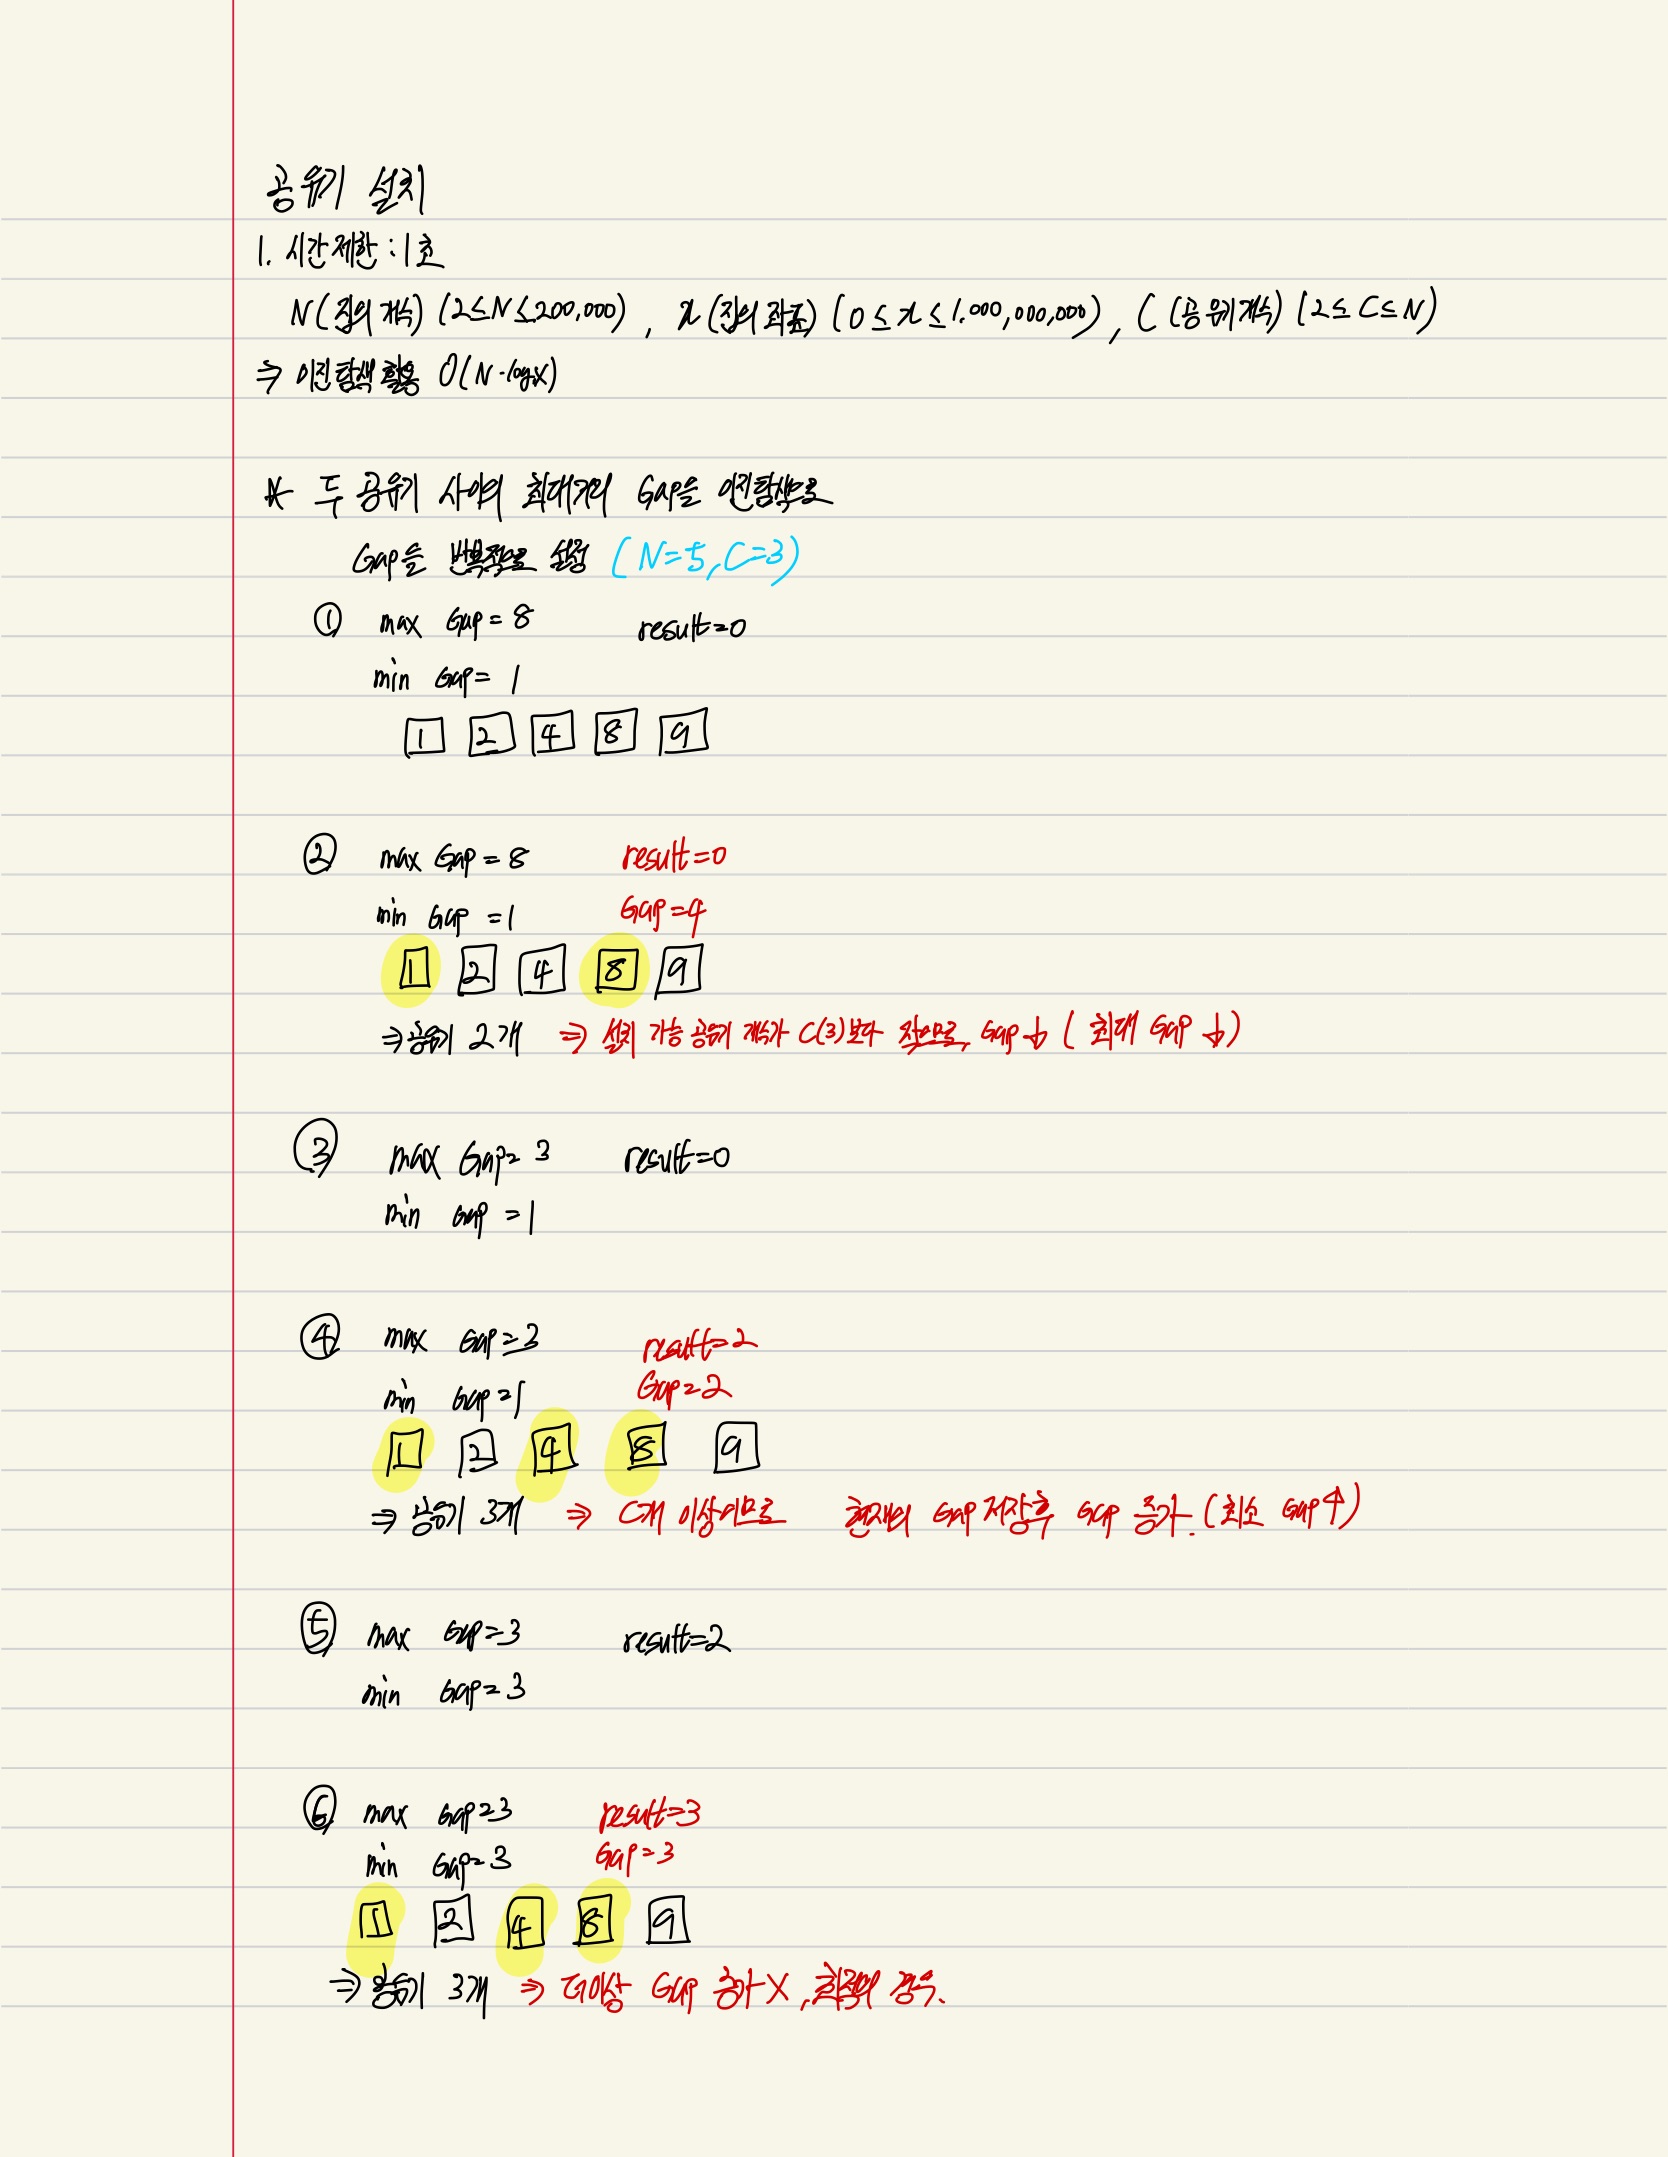 공유기 설치
1. 시간제한 : 1초
N(집의 개수) (2≤N≤200,000), x(집의 좌표) (0≤x≤1.000,000,000), C(공유기 개수) (2≤C≤N)
⇒ 이진탐색 활용 O(N·logX)
* 두 공유기 사이의 최대거리 Gap을 이진탐색으로
Gap을 반복적으로 설정 (N=5, C=3)
① max Gap=8 result=0
min Gap=1
1 2 4 8 9
② max Gap=8 result=0
min Gap=1 Gap=4
1 2 4 8 9
⇒ 공유기 2개 ⇒ 설치 가능 공유기 개수가 C(3)보다 작으므로, Gap↓ (최대 Gap↓)
③ max Gap=3 result=0
min Gap=1
④ max Gap=3 result=2
min Gap=1 Gap=2
1 2 4 8 9
⇒ 공유기 3개 ⇒ C개 이상이므로 현재의 Gap 저장후 Gap 증가. (최소 Gap↑)
⑤ max Gap=3 result=2
min Gap=3
⑥ max Gap=3 result=3
min Gap=3 Gap=3
1 2 4 8 9
⇒ 공유기 3개 ⇒ 더이상 Gap 증가 X, 최적의 경우.